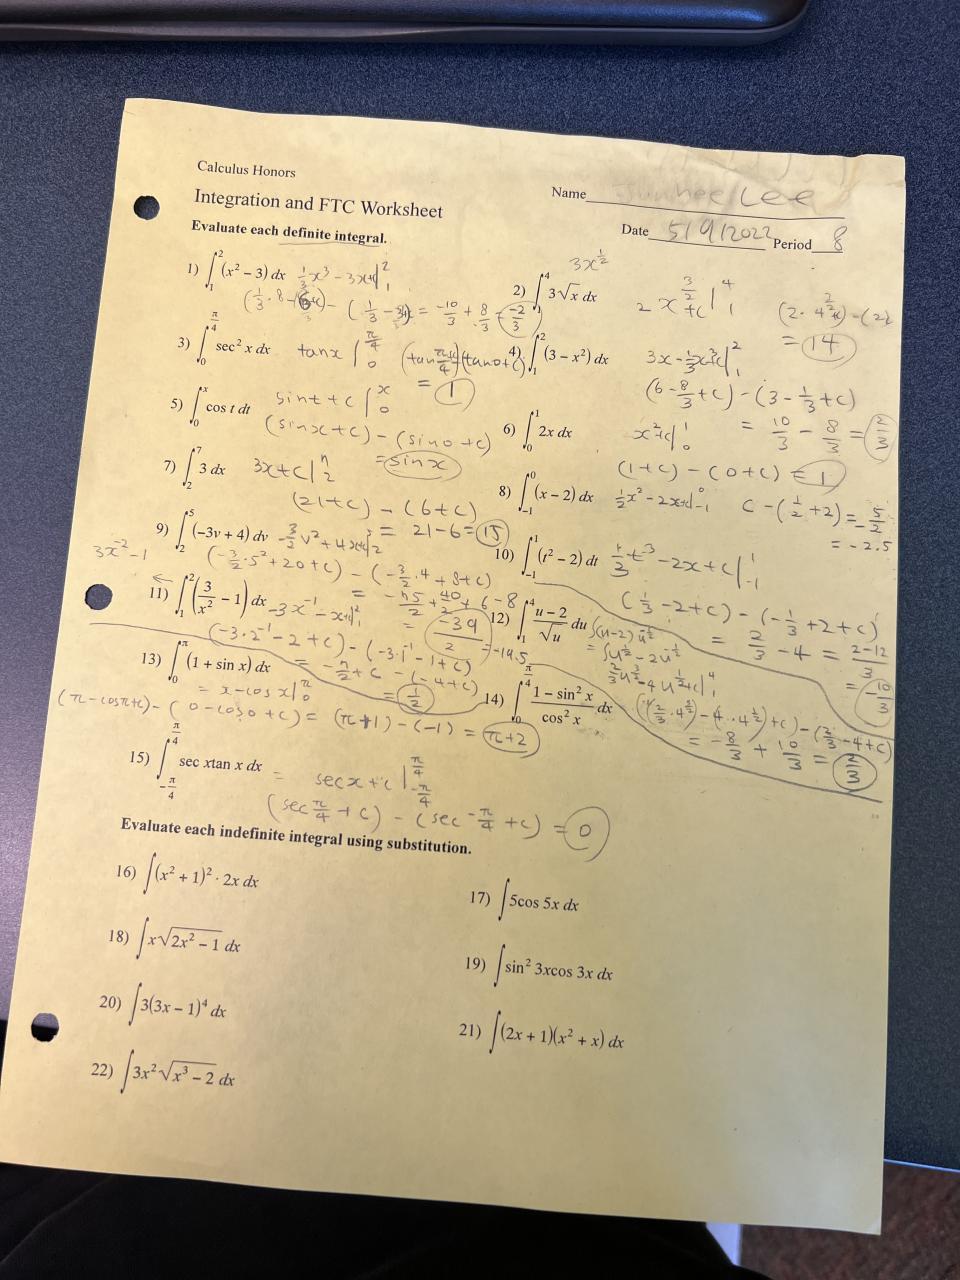 Calculus Honors
Name Junhee Lee
Integration and FTC Worksheet
Date 5/9/2022 Period 8
Evaluate each definite integral.
1) ∫₁² (x² − 3) dx 1/3 x³ − 3x+c |₁²
= −10/3 + 8/3 = −2/3
3x^(1/2)
2) ∫₁⁴ 3√x dx 2x^(3/2) + c |₁⁴
= 14
3) ∫₀^(π/4) sec² x dx tanx |₀^(π/4)
= 1
4) ∫₁² (3 − x²) dx 3x − 1/3 x³+c |₁²
(6 − 8/3 + c) − (3 − 1/3 + c)
= 10/3 − 8/3 = 2/3
5) ∫₀ˣ cos t dt sint + c |₀ˣ
(sinx + c) − (sin0 + c)
= sinx
6) ∫₀¹ 2x dx x²+c |₀¹
(1+c) − (0+c) = 1
7) ∫₂⁷ 3 dx 3x+c |₂⁷
(21+c) − (6+c)
= 21−6 = 15
8) ∫₋₁⁰ (x − 2) dx 1/2 x² − 2x+c |₋₁⁰ c − (1/2 + 2) = −5/2
= −2.5
9) ∫₂⁵ (−3v + 4) dv −3/2 v² + 4x+c |₂⁵
(−3/2 · 5² + 20 + c) − (−3/2 · 4 + 8 + c)
= −75/2 + 40/2 + 6 − 8
= −39/2 = −19.5
10) ∫₋₁¹ (t² − 2) dt 1/3 t³ − 2x + c |₋₁¹
(1/3 − 2 + c) − (−1/3 + 2 + c)
= 2/3 − 4 = 2−12/3
= 10/3
3x⁻² − 1
11) ∫₁² (3/x² − 1) dx −3x⁻¹ − x+c |₁²
(−3·2⁻¹ − 2 + c) − (−3·1⁻¹ − 1 + c)
= −7/2 + c − (−4 + c)
= 1/2
12) ∫₁⁴ (u − 2)/√u du ∫(u−2) u^(−1/2)
= ∫u^(1/2) − 2u^(−1/2)
2/3 u^(3/2) − 4u^(1/2) + c |₁⁴
(2/3 · 4^(3/2) − 4 · 4^(1/2) + c) − (2/3 − 4 + c)
= −8/3 + 10/3 = 2/3
13) ∫₀^π (1 + sin x) dx
= x − cos x |₀^π
(π − cosπ + c) − (0 − cos0 + c) = (π + 1) − (−1) = π+2
14) ∫₀^(π/4) (1 − sin² x)/cos² x dx
15) ∫₋π/4^(π/4) sec xtan x dx = secx + c |₋π/4^(π/4)
(sec π/4 + c) − (sec −π/4 + c) = 0
Evaluate each indefinite integral using substitution.
16) ∫(x² + 1)² · 2x dx
17) ∫5cos 5x dx
18) ∫x√(2x² − 1) dx
19) ∫sin² 3xcos 3x dx
20) ∫3(3x − 1)⁴ dx
21) ∫(2x + 1)(x² + x) dx
22) ∫3x²√(x³ − 2) dx